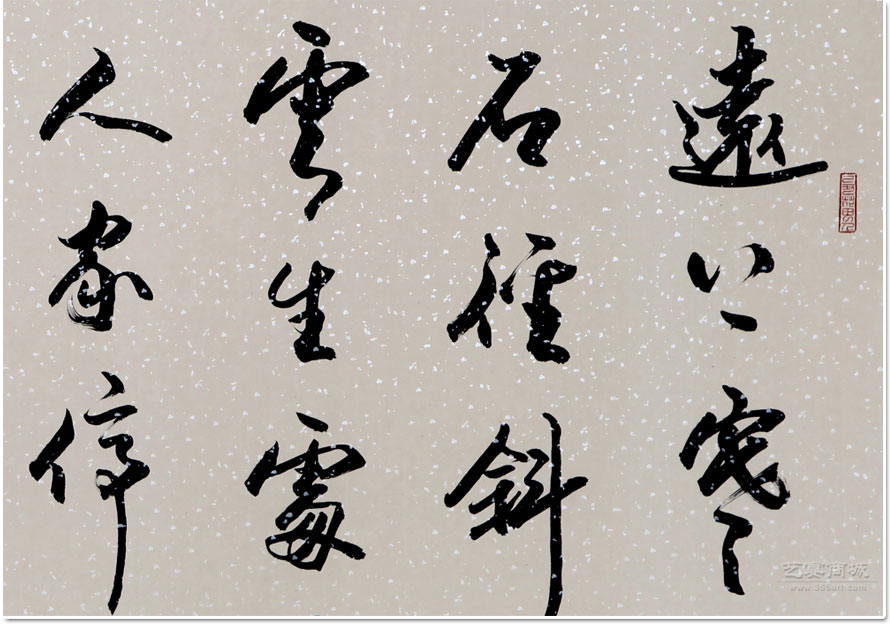 遠上寒
石徑斜
雲生處
人家停
www.365art.com